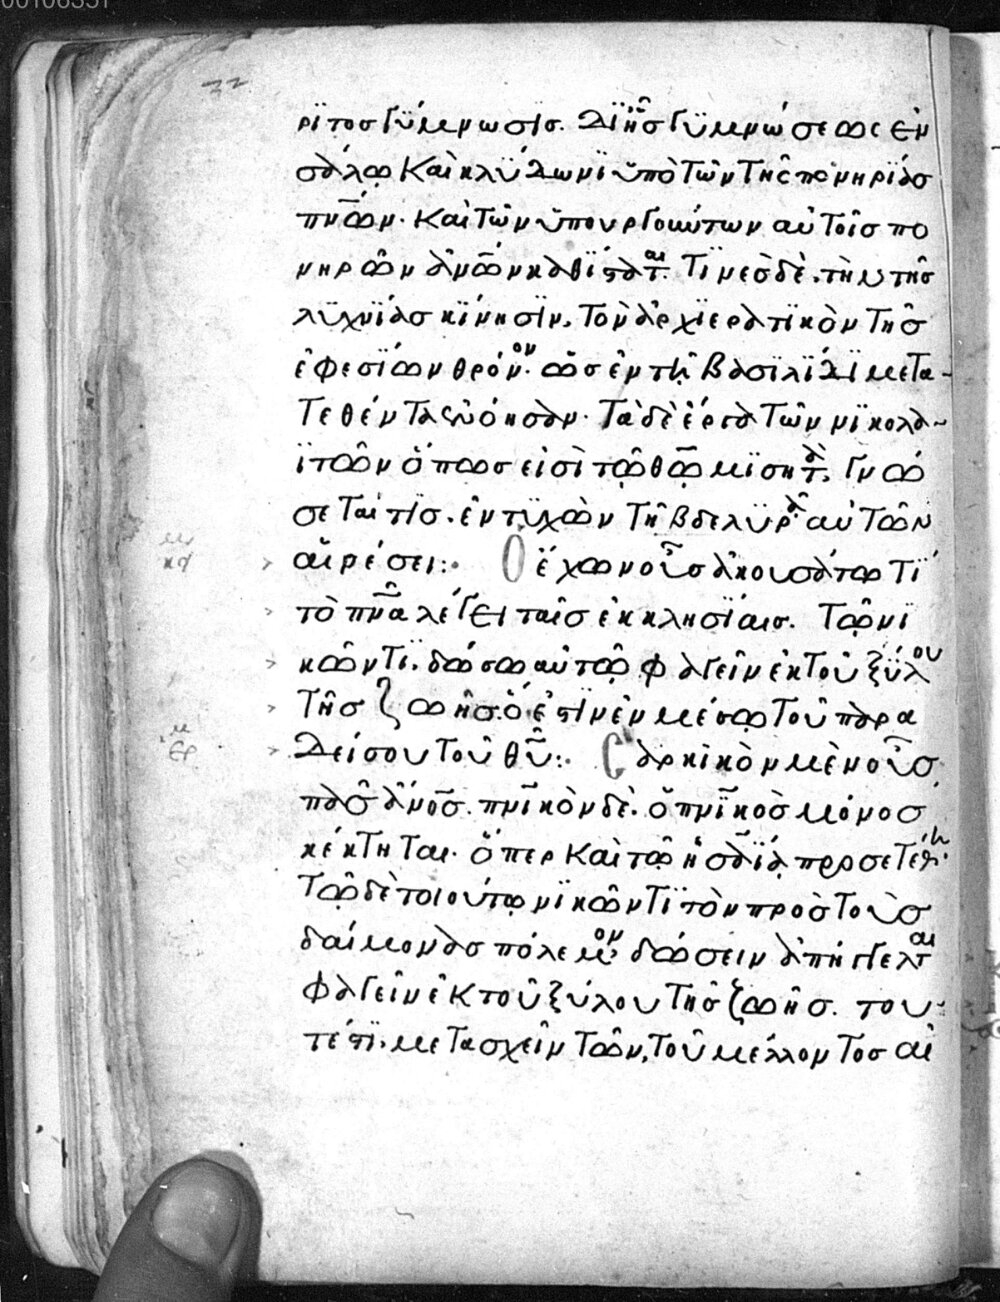 00106351
32
ρϊτοσ γύμνωσϊσ. δι ἧσ γϋμνώσεως ἐν
σάλω καὶ κλύδωνϊ ὑπὸ τῶν τῆς πονηρΐασ
πν̅ων· καὶ τῶν ὑπουργούντων αὐτοῖσ πο
νηρῶν ἀν̅ων καθϊσται. Τϊνὲσ δὲ. τὴν τῆσ
λϋχνϊασ κΐνησϊν, τὸν ἀρχϊερατϊκὸν τῆσ
ἐφεσΐων θρόνον. ὡσ ἐν τῆ βασϊλϊδϊ μετα-
τεθέντα ἐνόησαν· Τὰ δὲ ἔργα τῶν νϊκολα-
ϊτῶν ὅπωσ εἰσὶ τῶ θω̅ μϊσητὰ, γνώ
σεταί τϊσ. ἐντϋχὼν τῆ βδελϋρᾶ αὐτῶν
αἱρέσει:· Ὁ ἔχων οὖσ ἀκουσάτω τΐ
τὸ πνα̅ λέγει ταῖσ ἐκκλησϊαισ. Τῶ νϊ
κῶντϊ. δώσω αὐτῶ φαγεῖν ἐκ τοῦ ξϋλου
τῆσ ζωῆσ. ὅ ἐστϊν ἐν μέσω τοῦ παρα
δείσου τοῦ θυ̅:· Σαρκικὸν μὲν οὖσ
πᾶσ ἄνοσ̅. πνϊ̅κὸν δὲ. ὁ πνϊ̅κοσ μόνοσ
κέκτηται. ὅπερ καὶ τῶ ἡσαΐα προσετέθη·
Τῶ δὲ τοιούτω νϊκῶντϊ τὸν πρὸσ τοὺσ
δαίμονασ πόλεμον, δώσειν ἀπήγγελται
φαγεῖν ἐκ τοῦ ξύλου τῆσ ζωῆσ. του-
τέστϊ. μετασχεῖν τῶν τοῦ μέλλοντοσ αἰ